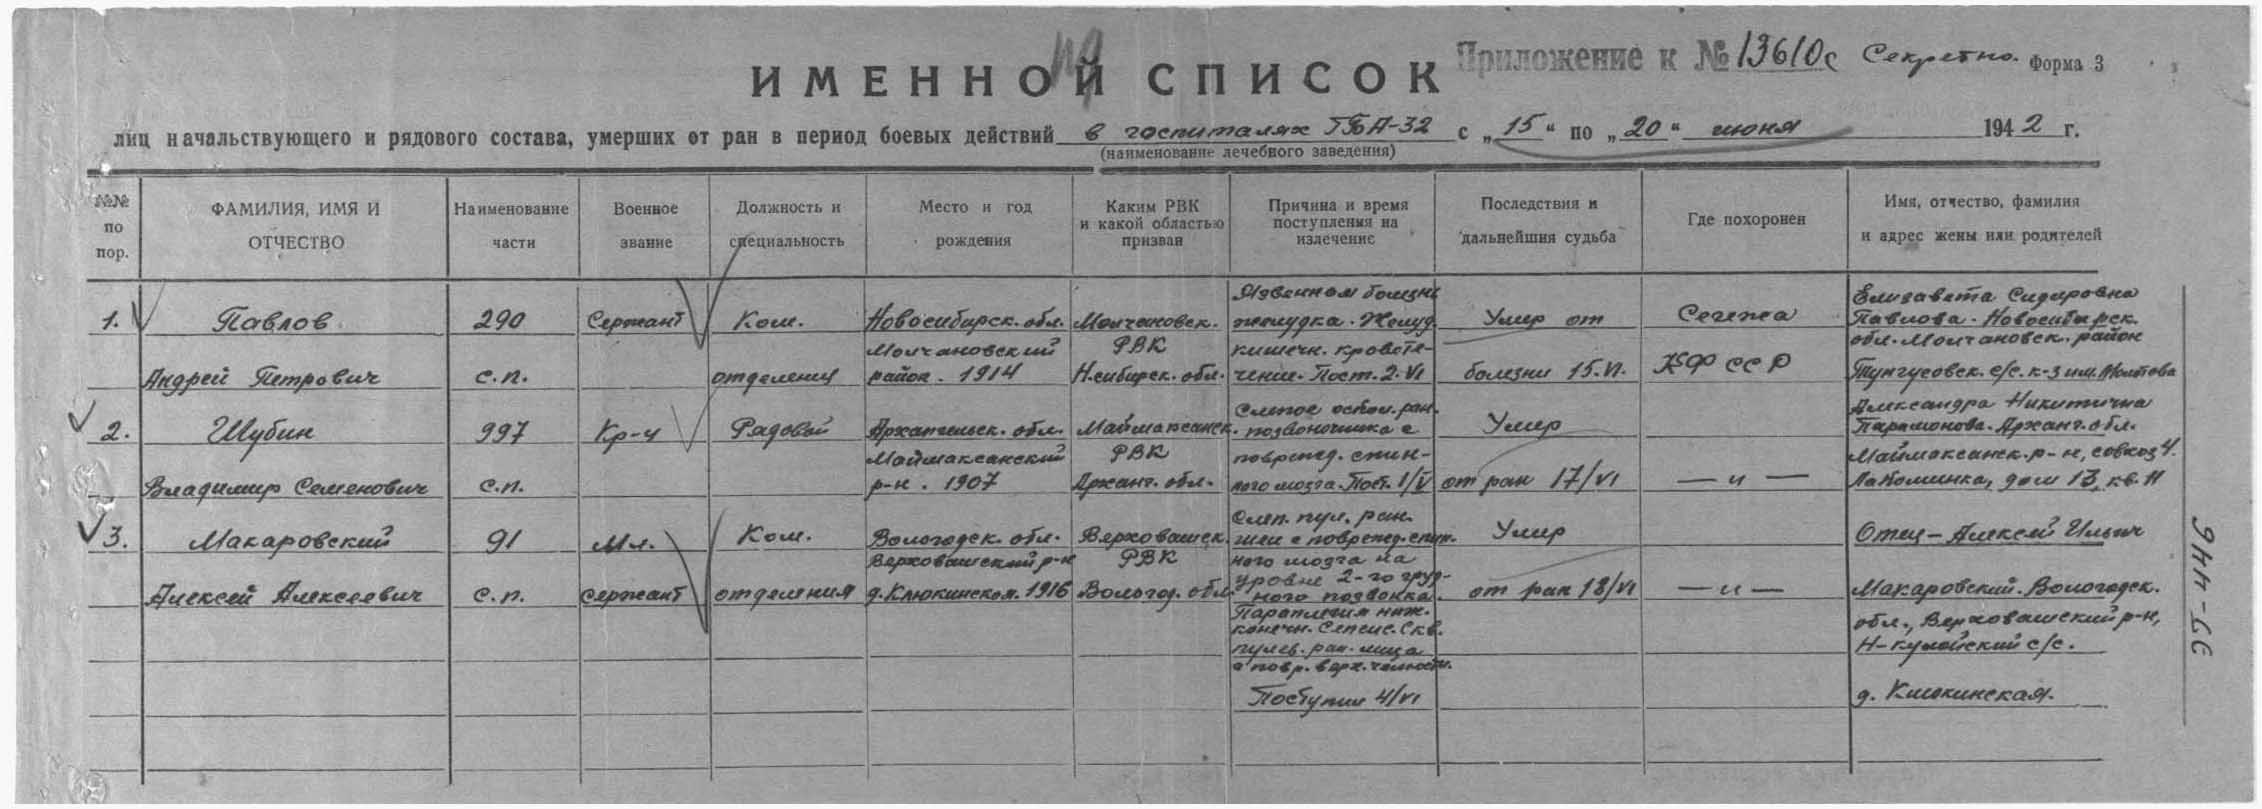 119
Приложение к № 13610с Секретно. Форма 3
ИМЕННОЙ СПИСОК
лиц начальствующего и рядового состава, умерших от ран в период боевых действий в госпиталях ГБА-32 с „15" по „20" июня 1942 г.
(наименование лечебного заведения)
№№ по пор.
ФАМИЛИЯ, ИМЯ И ОТЧЕСТВО
Наименование части
Военное звание
Должность и специальность
Место и год рождения
Каким РВК и какой областью призван
Причина и время поступления на излечение
Последствия и дальнейшия судьба
Где похоронен
Имя, отчество, фамилия и адрес жены или родителей
1.
Павлов
Андрей Петрович
290
с.п.
Сержант
Ком.
отделения
Новосибирск. обл.
Молчановский
район. 1914
Молчановск.
РВК
Н.сибирск. обл.
Язвенная болезнь
желудка. Желуд.
кишечн. кровоте-
чение. Пост. 2.VI
Умер от
болезни 15.VI.
Сегежа
КФССР
Елизавета Сидоровна
Павлова. Новосибирск.
обл. Молчановск. район
Тунгусовск. с/с. к-з им. Молотова
2.
Шубин
Владимир Семенович
997
с.п.
Кр-ц
Рядовой
Архангельск. обл.
Маймаксанский
р-н. 1907
Маймаксанск.
РВК
Арханг. обл.
Слепое оскол. ран.
позвоночника с
поврежд. спин-
ного мозга. Пост. 1/V
Умер
от ран 17/VI
— и —
Александра Никитична
Парамонова. Арханг. обл.
Маймаксанск. р-н, совхоз 4.
дом 13, кв. 11
3.
Макаровский
Алексей Алексеевич
91
с.п.
Мл.
сержант
Ком.
отделения
Вологодск. обл.
Верховашский р-н
д. Клюкинская. 1916
Верховашск.
РВК
Вологод. обл.
Слеп. пул. ран.
шеи с поврежд. спин.
ного мозга на
уровне 2-го груд-
ного позвонка.
Параплегия ниж.
конечн. Сепсис. Скв.
пулев. ран. лица
с повр. верх. челюсти.
Поступил 4/VI
Умер
от ран 18/VI
— и —
Отец - Алексей Ильич
Макаровский. Вологодск.
обл., Верховашский р-н,
Н-кулойский с/с.
д. Клюкинская.
33-446